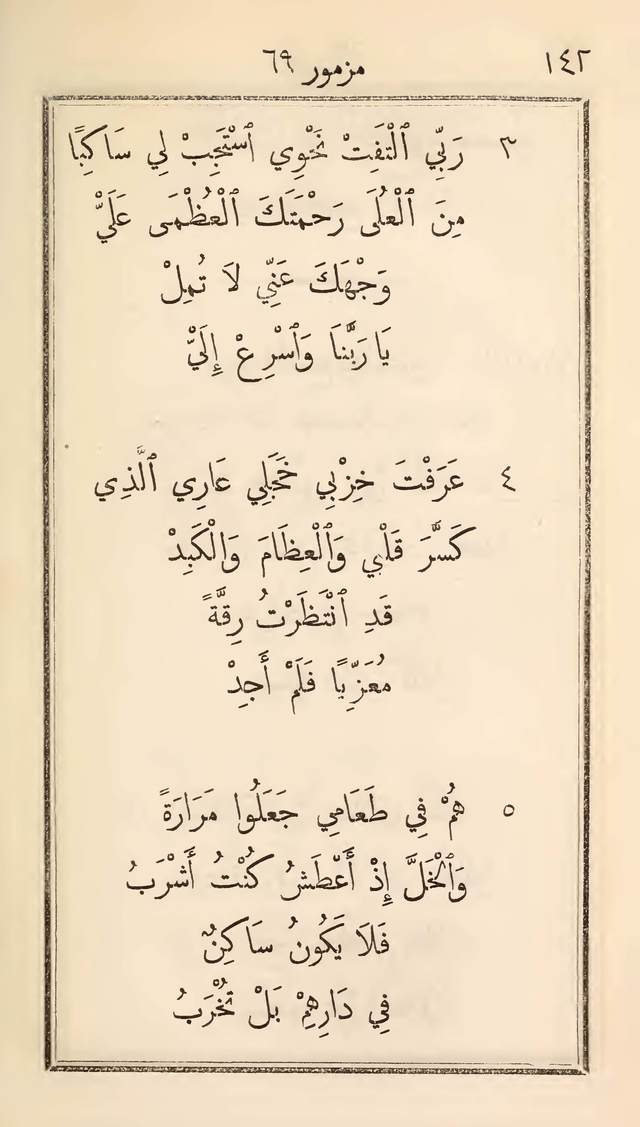 ١٤٢ مزمور ٦٩
٣ رَبِّي ٱلْتَفِتْ نَحْوِي ٱسْتَجِبْ لِي سَاكِبًا
مِنَ ٱلْعُلَى رَحْمَتَكَ ٱلْعُظْمَى عَلَيَّ
وَجْهَكَ عَنِّي لَا تُمِلْ
يَا رَبَّنَا وَٱسْرِعْ إِلَيَّ
٤ عَرَفْتَ خِزْيِي خَجَلِي عَارِي ٱلَّذِي
كَسَّرَ قَلْبِي وَٱلْعِظَامَ وَٱلْكَبِدْ
قَدِ ٱنْتَظَرْتُ رِقَّةً
مُعَزِّيًا فَلَمْ أَجِدْ
٥ هُمْ فِي طَعَامِي جَعَلُوا مَرَارَةً
وَٱلْخَلَّ إِذْ أَعْطَشُ كُنْتُ أَشْرَبُ
فَلَا يَكُونُ سَاكِنٌ
فِي دَارِهِمْ بَلْ تُخْرَبُ